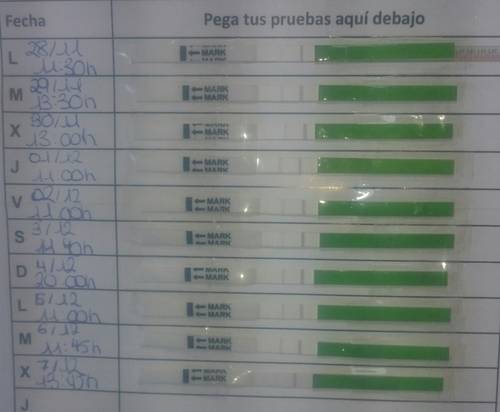 Fecha Pega tus pruebas aquí debajo
L 28/11 MARK
11:30h MARK
M 29/11 MARK
13:30h MARK
X 30/11 MARK
13:00h MARK
J 01/12 MARK
11:00h MARK
V 02/12 MARK
11:00h MARK
S 3/12 MARK
11:40h MARK
D 4/12 MARK
20:00h MARK
L 5/12 MARK
11:00h MARK
M 6/12 MARK
11:45h MARK
X 7/12 MARK
MARK
J